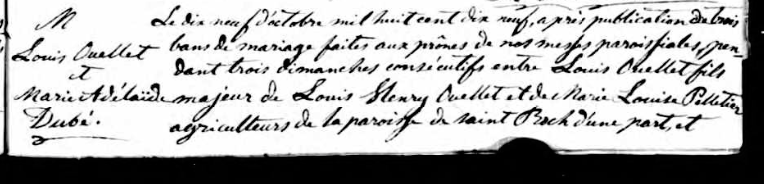 M
Louis Ouellet
et
Marie Adélaïde
Dubé.
Le dix neuf d'octobre mil huit cent dix neuf, après publication de trois
bans de mariage faites aux prônes de nos messes paroissiales, pen-
dant trois dimanches consécutifs entre Louis Ouellet fils
majeur de Louis Henry Ouellet et de Marie Louise Pelletier
agriculteurs de la paroisse de saint Roch d'une part, et